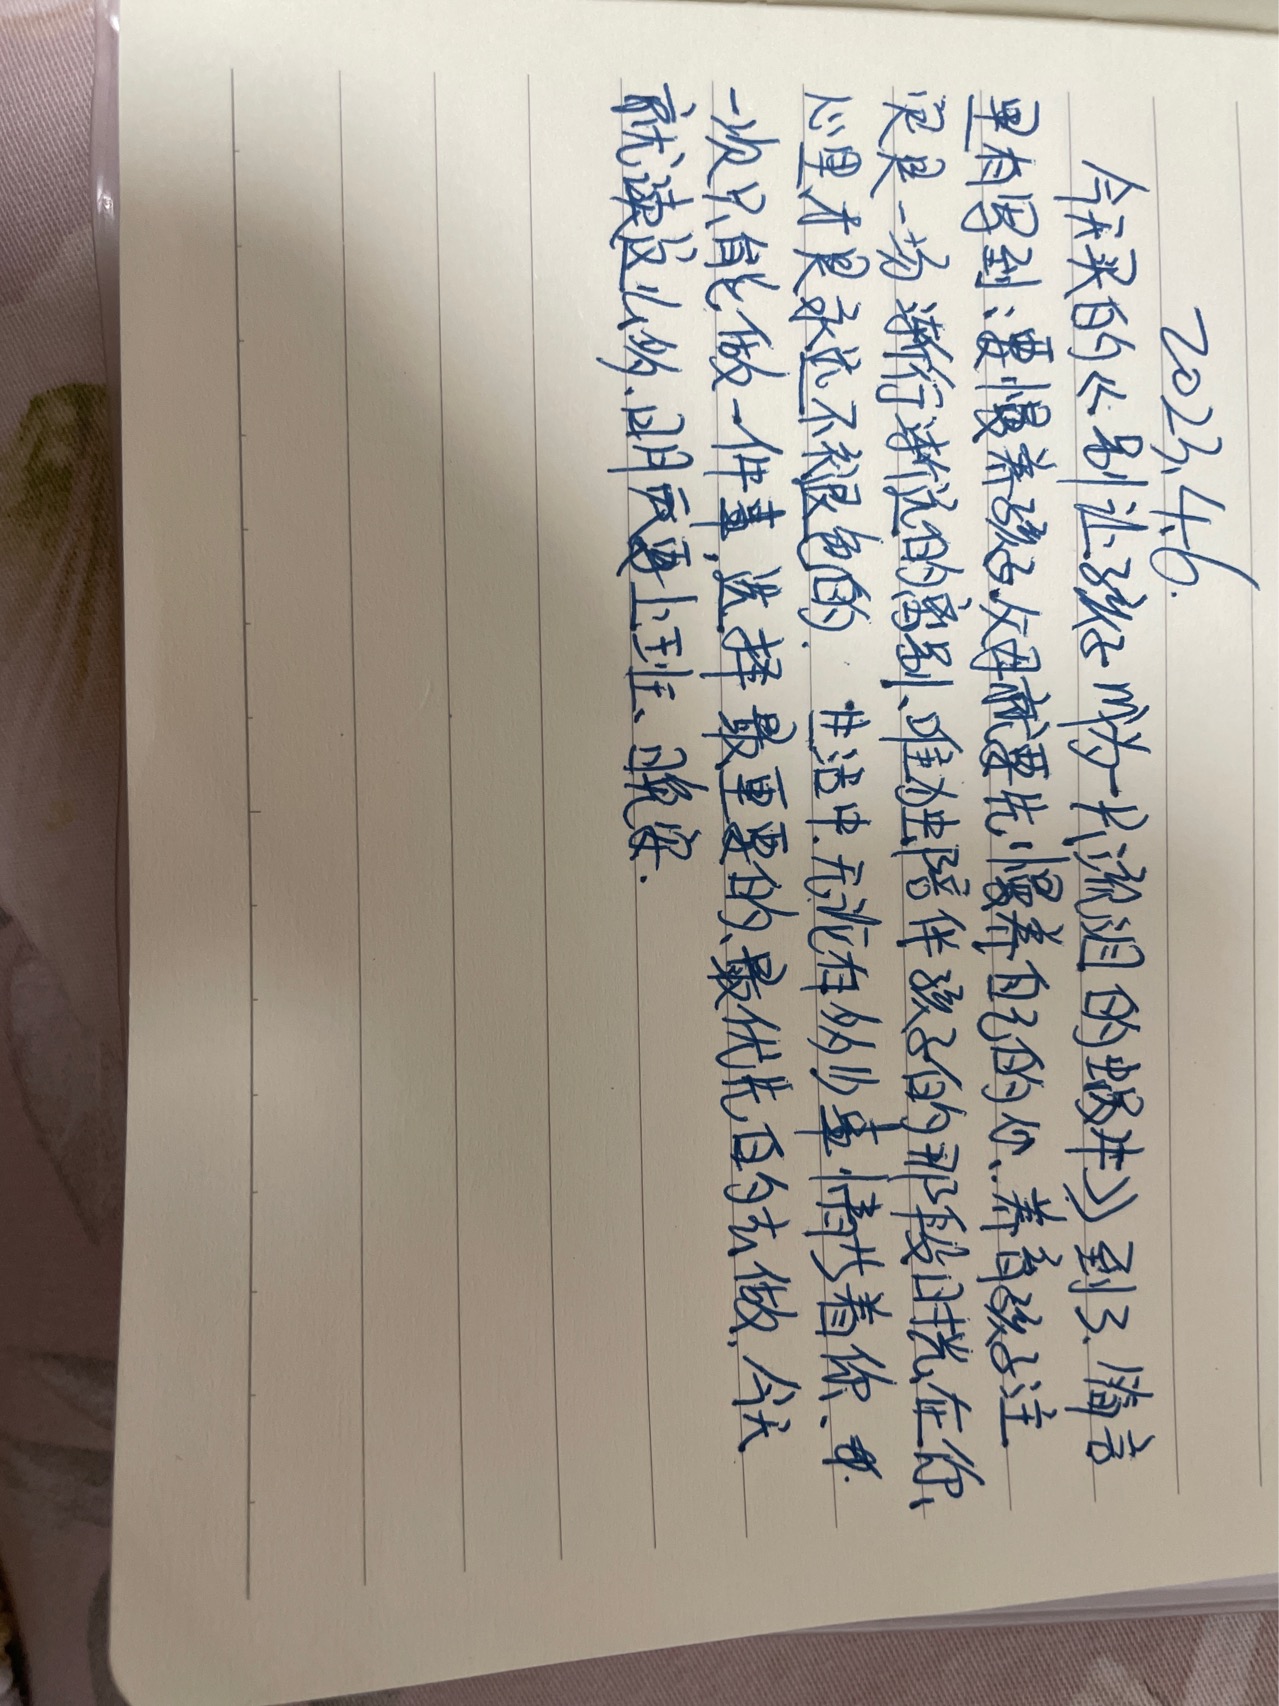 2023.4.6.
今天买的《别让孩子成为一只流泪的蜗牛》到了、简言
里有写到：要慢养孩子父母就要先慢养自己的心、养育孩子注
定是一场渐行渐远的离别、唯独陪伴孩子的那段时光、在你、
心里才是永远不褪色的. 生活中.无论有多少事情等着你、你.
一次只能做一件事，选择最重要的、最优先的去做，今天
就读这么多.明天要上班、晚安.